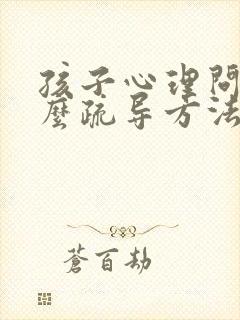 孩子心理问
麼疏导方法
蒼百劫